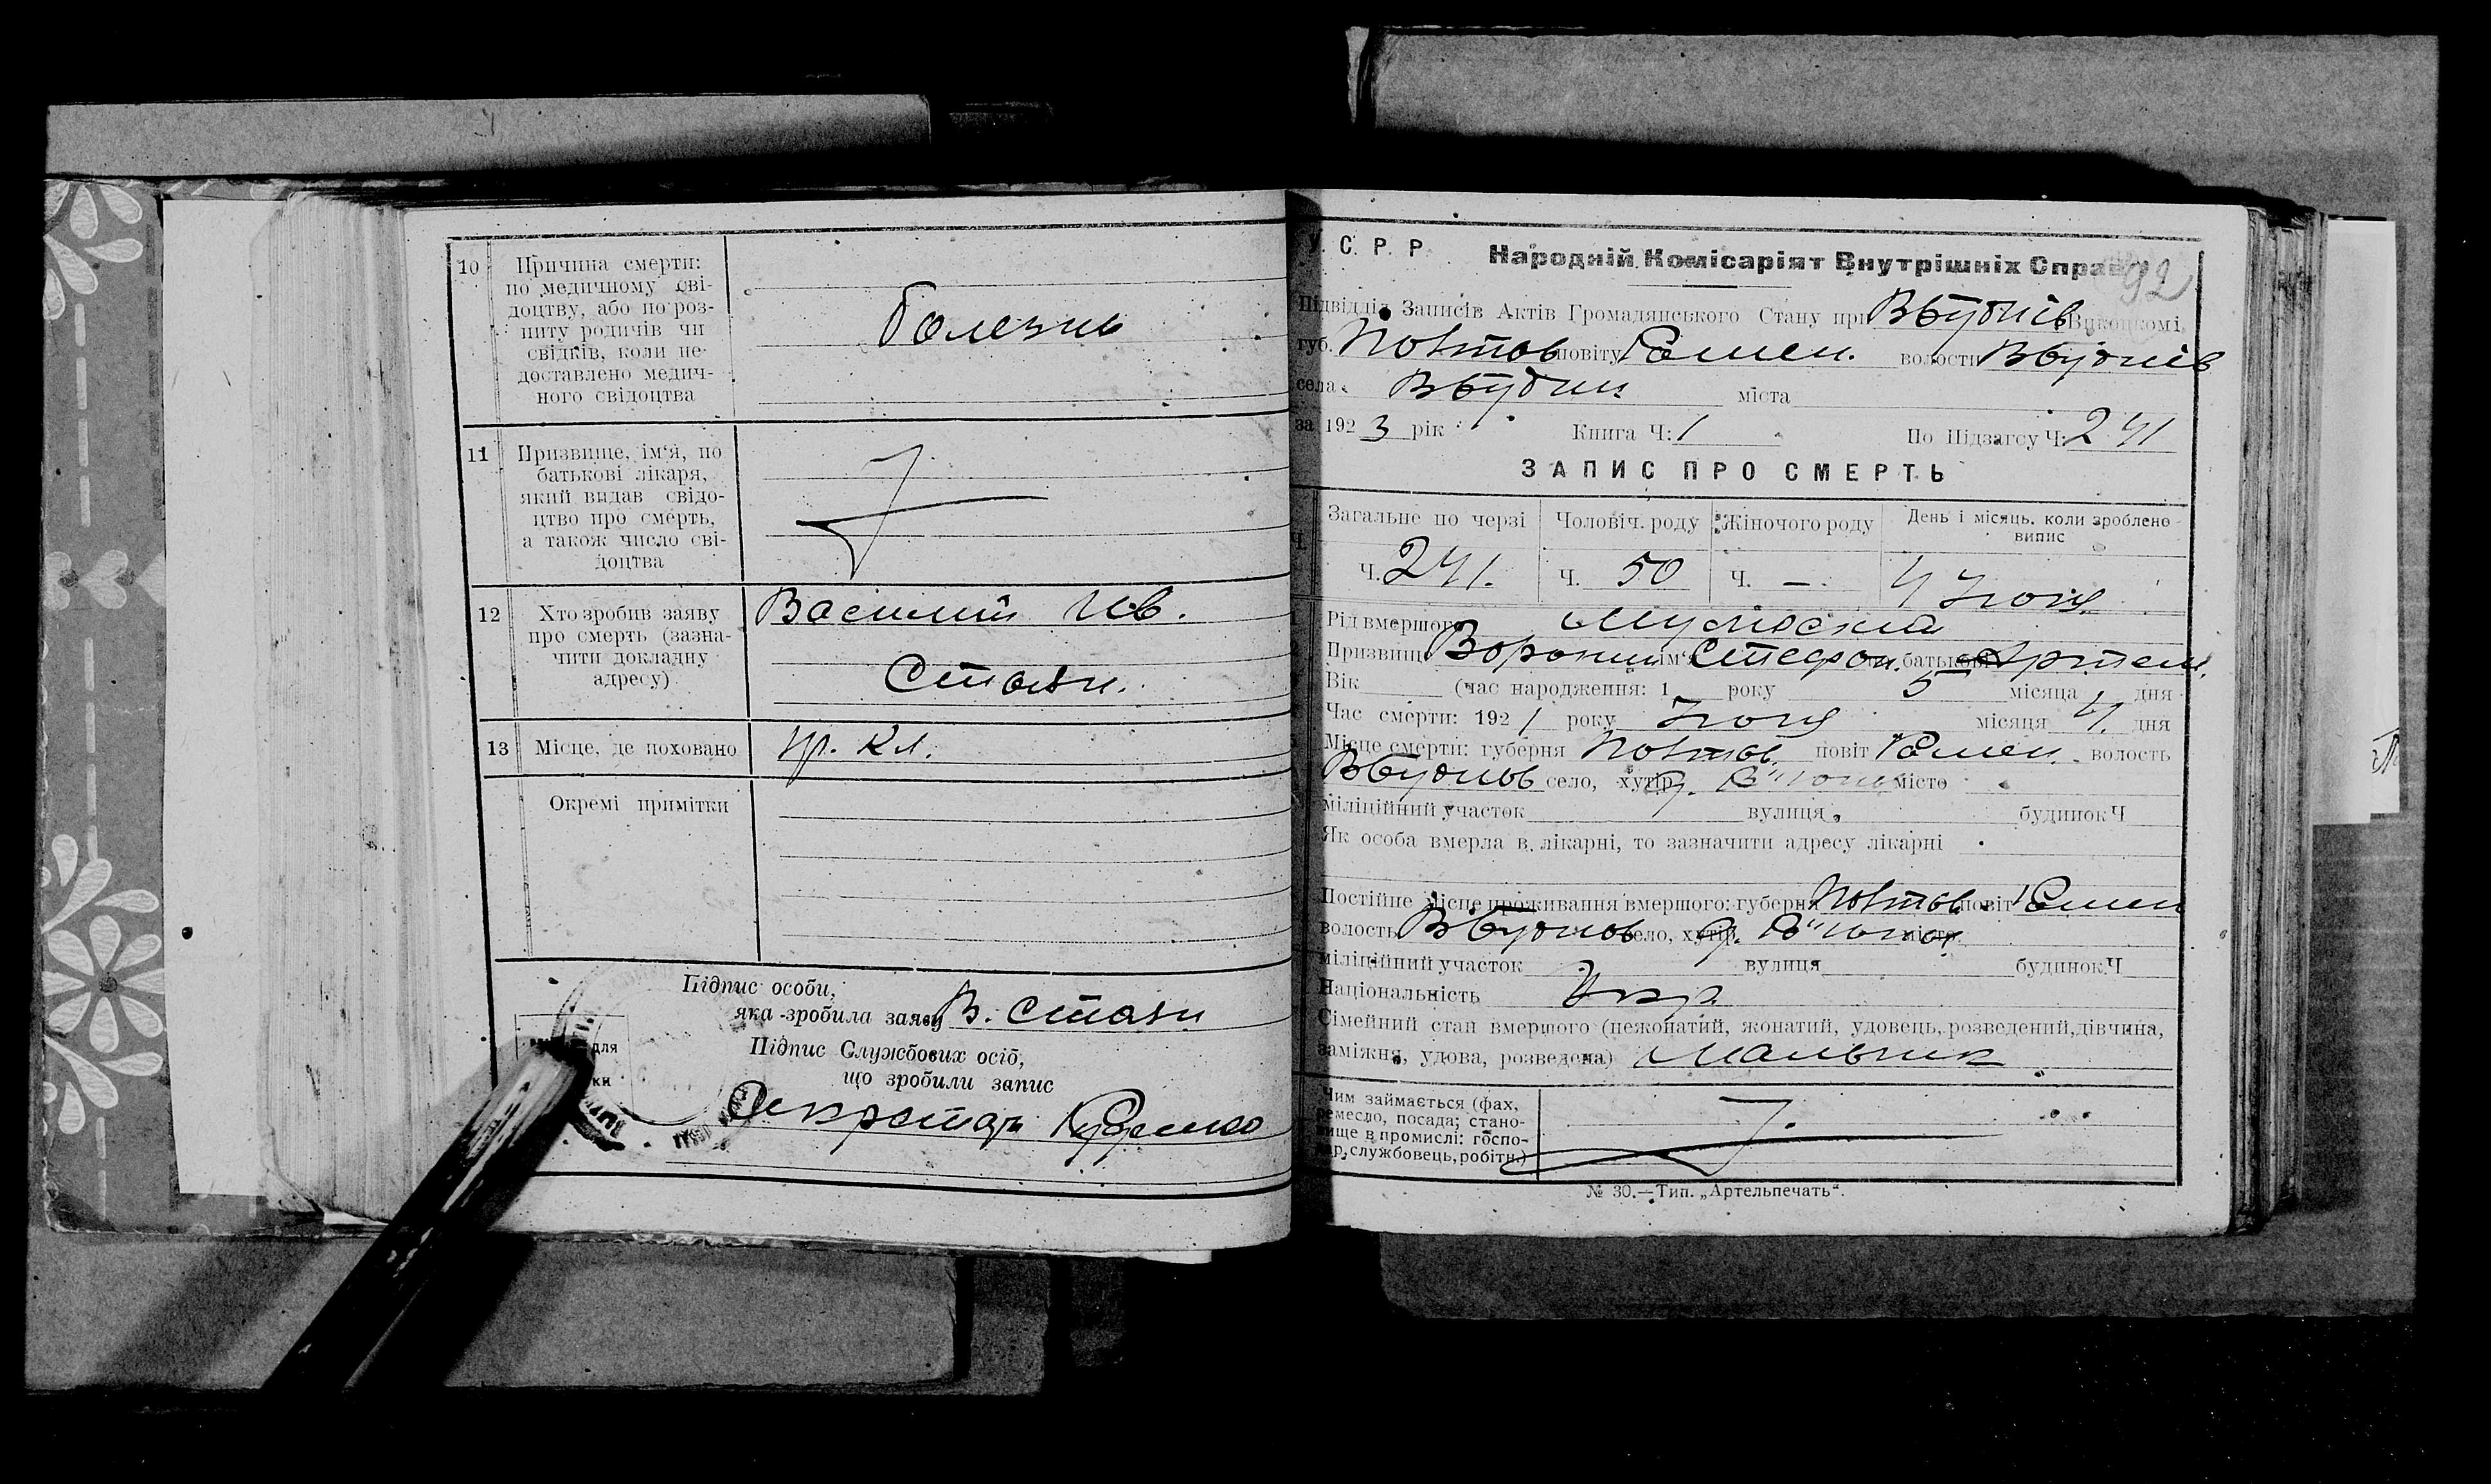 10
Причина смерти:
по медичному сві-
доцтву, або по роз-
питу родичів чи
свідків, коли не-
доставлено медич-
ного свідоцтва
Болезнь
11
Призвище, ім'я, по
батькові лікаря,
який видав свідо-
цтво про смерть,
а також число сві-
доцтва
12
Хто зробив заяву
про смерть (зазна-
чити докладну
адресу)
Василий Ив.
13 Місце, де поховано
гр. кл.
Окремі примітки
Підпис особи,
яка зробила заяву В.
Підпис Службових осіб,
що зробили запис
Секретарь
У. С. Р. Р.
Народній Комісаріят Внутрішніх Справ
92
Підвідділ Записів Актів Громадянського Стану при Викоцкомі
губ. Полтав повіту Ромен. волости
села міста
за 1923 рік Книга Ч: 1 По Підзагсу Ч: 241
ЗАПИС ПРО СМЕРТЬ
Загальне по черзі Чоловіч. роду Жіночого роду День і місяць, коли зроблено
випис
Ч. 241. Ч. 50 Ч. —. 4 Июня
Рід вмершого Мужоской
Призвище ім'я Стефан. по батькові Артем.
Вік (час народження: 1 року 5 місяця 4 дня
Час смерти: 1921 року Июня місяця 4. дня
Місце смерти: губерня Полтав. повіт Ромен. волость
село, хутір місто
міліційний участок вулиця будинок Ч
Як особа вмерла в лікарні, то зазначити адресу лікарні
Постійне місце проживання вмершого: губерня Полтав. повіт Ромен
волость село, хутір місто
міліційний участок вулиця будинок Ч
Національність Укр.
Сімейний стан вмершого (нежонатий, жонатий, удовець, розведений, дівчина,
заміжня, удова, розведена) Мальчик
Чим займається (фах,
ремесло, посада; стано-
вище в промислі: госпо-
дар, службовець, робітн.)
№ 30.—Тип. „Артельпечать“.